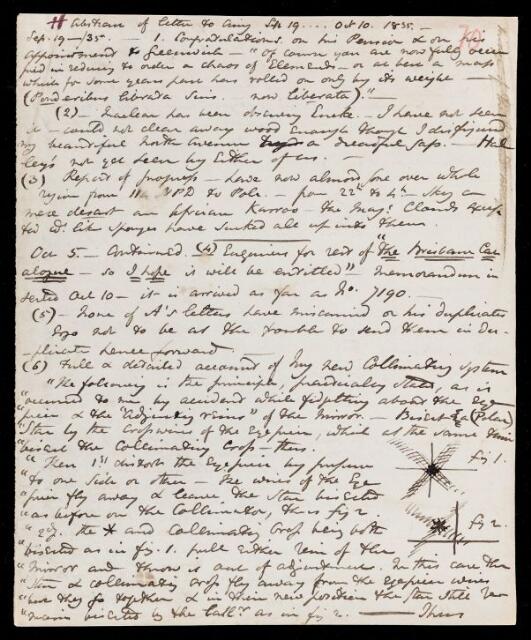 # Abstract of letter to Airy Sep. 19.... Oct 10. 1835.—
Sep. 19—/35— —1. Congratulations on his Pension & on his
appointment to Greenwich — "Of course you are now fully occu
pied in reducing to order a chaos of Elements — or at best a mass
which for some years past has rolled on only by its weight —
(Ponderibus librata suis. now liberata)."—
(2) — Maclear has been observing Encke. — I have not seen
it — could not clear away wood enough though I disfigured
my beautiful North Avenue by a dreadful gap. — Hal
ley's not yet seen by Either of us. —
(3) Report of progress — have now almost gone over whole
region from 110 NPD to Pole — from 22h to 4h — Sky a
mere desart an African Karroo — the Mag! Clouds excep
ted wh like sponges have sucked all up into them.
Oct 5. — Continued. (4) Enquiries for rest of "The Brisbane Cat
alogue — so I hope it will be entitled" — Memorandum in
serted Oct 10 — it is arrived as far as No. 7190. —
(5) — None of A's letters have miscarried or his duplicates
Ergo not to be at the trouble to send them in Du-
-plicate hence forward.
(6) Full & detailed account of my new Collimating System
"The following is the principle, practically stated, as it
"occurred to me by accident while fidgetting about the eye-
"piece & the "adjusting reins" of the Mirror — Bisect a (Polar)
"Star by the crosswires of the eyepiece, which at the same time
"bisect the Collimating Cross — thus.
"Then 1st disturb the Eyepiece by pushing
"to one side or other — The wires of the Eye
"piece fly away & leave the Star bisected
"as before on the Collimator, thus fig 2
"2dly. the * and Collimating Cross being both
"bisected as in fig. 1. pull either rein of the
"Mirror and throw it out of adjustment. In this case the
"Star & collimating cross fly away from the eyepiece wires
"but they go together & in their new position the Star still re
"mains bisected by the Coll.r as in fig 2. — Thus
fig 1.
fig 2.